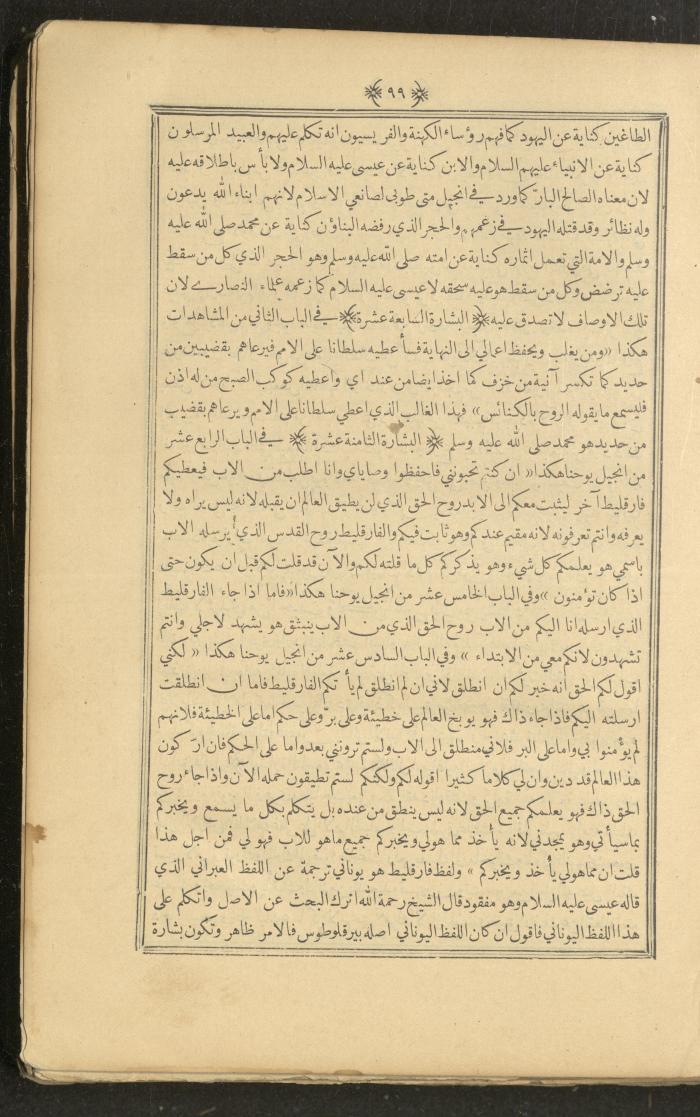 ٩٩
الطاغين كناية عن اليهود كما فهم رؤساء الكهنة والفريسيون انه تكلم عليهم والعبيد المرسلون
كناية عن الانبياء عليهم السلام والابن كناية عن عيسى عليه السلام ولا بأس باطلاقه عليه
لان معناه الصالح البارّ كما ورد في انجيل متى طوبى لصانعي الاسلام لانهم ابناء الله يدعون
وله نظائر وقد قتله اليهود في زعمهم والحجر الذي رفضه البناؤن كناية عن محمد صلى الله عليه
وسلم والامة التي تعمل اثماره كناية عن امته صلى الله عليه وسلم وهو الحجر الذي كل من سقط
عليه ترضض وكل من سقط هو عليه سحقه لا عيسى عليه السلام كما زعمه علماء النصارے لان
تلك الاوصاف لا تصدق عليه ﴿ البشارة السابعة عشرة ﴾ في الباب الثاني من المشاهدات
هكذا «ومن يغلب ويحفظ اعمالي الى النهاية فسأعطيه سلطانا على الامم فيرعاهم بقضيبين من
حديد كما تكسر آنية من خزف كما اخذ ايضا من عند ابي واعطيه كوكب الصبح من له اذن
فليسمع ما يقوله الروح بالكنائس» فهذا الغالب الذي اعطي سلطانا على الامم ويرعاهم بقضيب
من حديد هو محمد صلى الله عليه وسلم ﴿ البشارة الثامنة عشرة ﴾ في الباب الرابع عشر
من انجيل يوحنا هكذا «ان كنتم تحبونني فاحفظوا وصاياي وانا اطلب من الاب فيعطيكم
فارقليط آخر ليثبت معكم الى الابد روح الحق الذي لن يطيق العالم ان يقبله لانه ليس يراه ولا
يعرفه وانتم تعرفونه لانه مقيم عندكم وهو ثابت فيكم والفارقليط روح القدس الذي يرسله الاب
باسمي هو يعلمكم كل شيء وهو يذكركم كل ما قلته لكم والآن قد قلت لكم قبل ان يكون حتى
اذا كان تؤمنون» وفي الباب الخامس عشر من انجيل يوحنا هكذا «فاما اذا جاء الفارقليط
الذي ارسله انا اليكم من الاب روح الحق الذي من الاب ينبثق هو يشهد لاجلي وانتم
تشهدون لانكم معي من الابتداء» وفي الباب السادس عشر من انجيل يوحنا هكذا «لكني
اقول لكم الحق انه خير لكم ان انطلق لاني ان لم انطلق لم يأتكم الفارقليط فاما ان انطلقت
ارسلته اليكم فاذا جاء ذاك فهو يوبخ العالم على خطيئة وعلى برّ وعلى حكم اما على الخطيئة فلانهم
لم يؤمنوا بي واما على البر فلاني منطلق الى الاب ولستم ترونني بعد واما على الحكم فان اركون
هذا العالم قد دين وان لي كلاما كثيرا اقوله لكم ولكنكم لستم تطيقون حمله الآن واذا جاء روح
الحق ذاك فهو يعلمكم جميع الحق لانه ليس ينطق من عنده بل يتكلم بكل ما يسمع ويخبركم
بما سيأتي وهو يمجدني لانه يأخذ مما هو لي ويخبركم جميع ما هو للاب فهو لي فمن اجل هذا
قلت ان مما هو لي يأخذ ويخبركم» ولفظ فارقليط هو يوناني ترجمة عن اللفظ العبراني الذي
قاله عيسى عليه السلام وهو مفقود قال الشيخ رحمة الله اترك البحث عن الاصل واتكلم على
هذا اللفظ اليوناني فاقول ان كان اللفظ اليوناني اصله بيرقلوطوس فالامر ظاهر وتكون بشارة